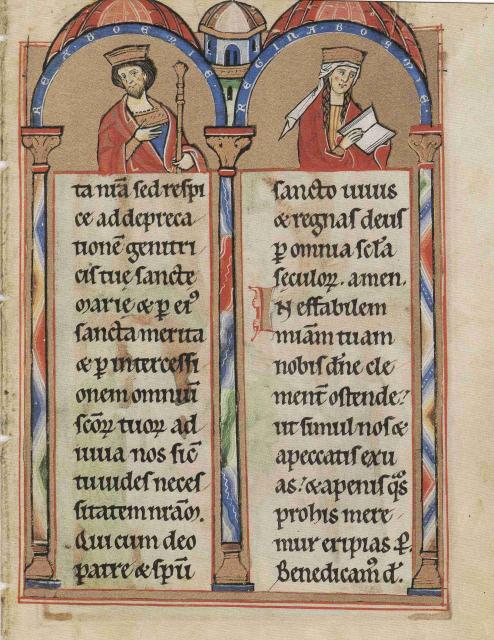 REX BOEMIE
REGINA BOEMIE
ta nr̄a sed respi
ce ad depreca
tionē genitri
cis tue sancte
marie & ꝑ ei᷒
sancta merita
& ꝑ intercessi
onem omniū
sc̄oꝝ tuoꝝ ad
iuua nos sic̄
tu uides neces
sitatem nr̄am.
Qui cum deo
patre & sp̄u
sancto uiuis
& regnas deus
ꝑ omnia sc̄la
seculoꝝ. amen.
IN effabilem
mīam tuam
nobis dn̄e cle
ment̄ ostende:
ut simul nos &
a peccatis exu
as: & a penis qͣs
pro his mere
mur eripias ꝑ.
Benedicam̄ d̄.